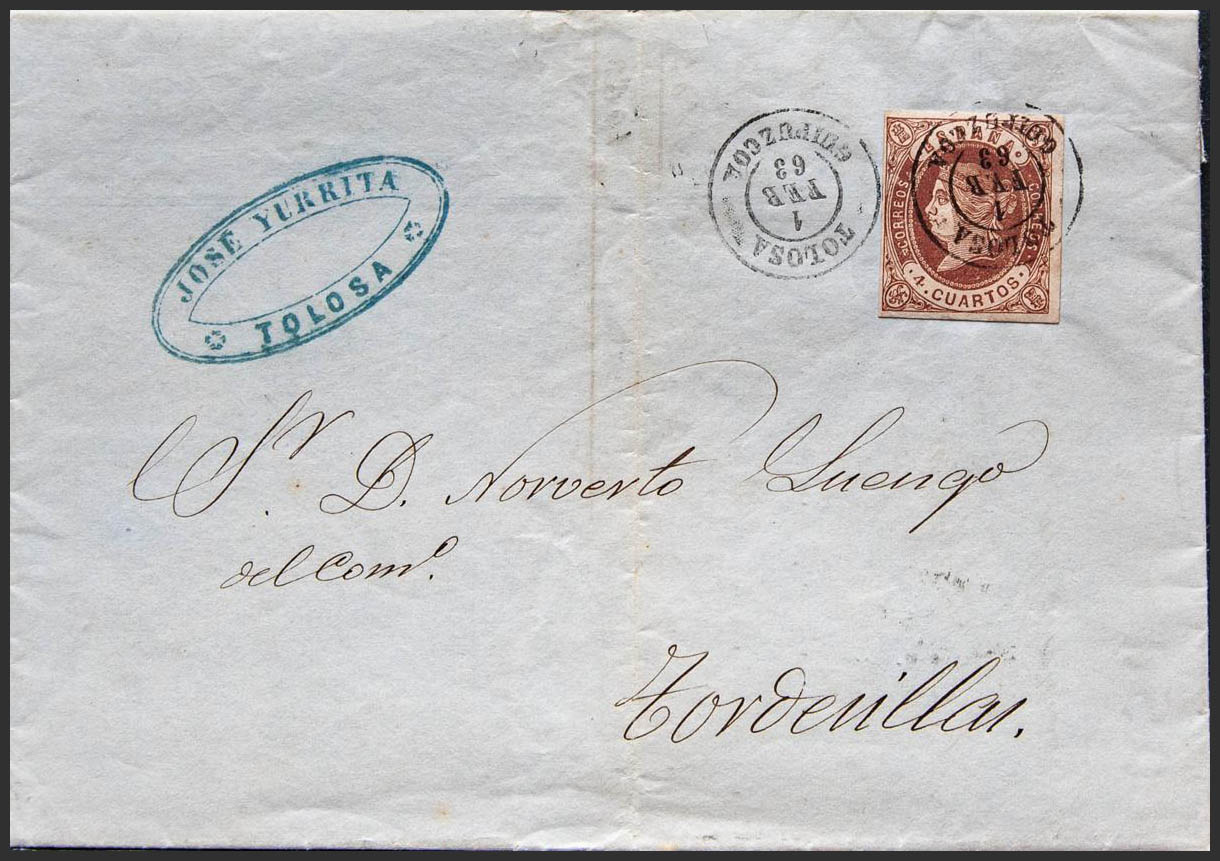 JOSÉ YURRITA
TOLOSA
TOLOSA
1
FEB
63
GUIPUZCOA
ESPAÑA
CORREOS
CORREOS
4 CUARTOS
TOLOSA
1
FEB
63
GUIPUZCOA
Sr. D. Norverto Luengo
del Comº.
Tordesillas.